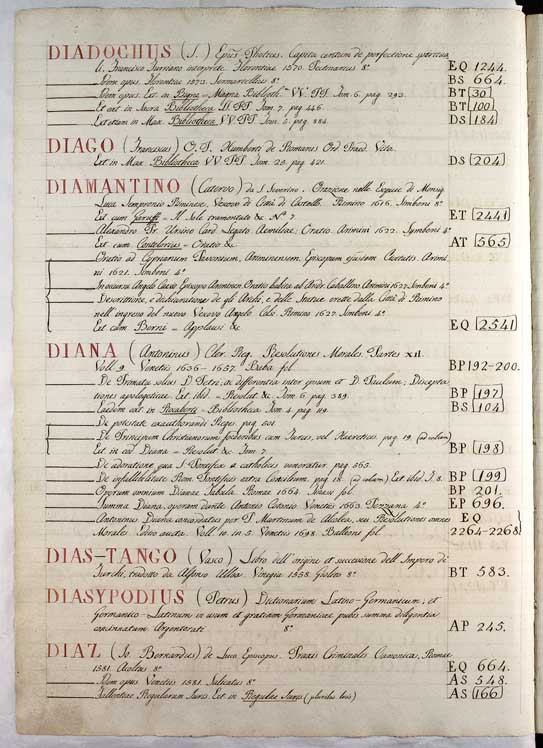 DIADOCHUS (S.) Epūs Photices. Capita centum de perfectione spirituali, Francisco Turriano interprete. Florentiae 1570. Sectinarius 8° EQ 1244.
Idem opus. Florentiae 1573. Sermartellius 8° BS 664.
Idem opus. Ext. in Bigne - Magna Biblioth. VV. PP. Tom. 6. pag. 293. BT 30
Et ext. in Sacra Bibliotheca SS. PP. Tom. 7. pag. 446. BT 100
Ext. etiam in Max. Bibliotheca VV. PP. Tom. 5. pag. 884. DS 184
DIAGO (Franciscus) O. P. Humberti de Romanis Ord. Praed. Vita.
Ext. in Max. Bibliotheca VV. PP. Tom. 25. pag. 421. DS 204
DIAMANTINO (Catervo) da S. Severino. Orazione nelle Esequie di Monsig.
Luca Sempronio Riminese, Vescovo di Città di Castello. Rimino 1616. Simboni 8°
Est cum - Il Sole tramontato &c. N° 7. ET 2441
Alexandro Tit. Ursino Card. Legato Aemiliae, Oratio. Arimini 1622. Symboni 4°
Est cum - Oratio &c. AT 565
Oratio ad Cyprianum Pavonium, Ariminensem Episcopum ejusdem Civitatis. Arimini 1621. Simboni 4°
In occursu Angelo Caesio Episcopo Ariminen. Oratio habita ab Andr. Caballino. Arimini 1627. Simboni 4°
Descrittione, e dichiarationes de gli Archi, e delle Statue erette dalla Città di Rimino
nell' ingresso del nuovo Vescovo Angelo Cesi. Rimino 1627. Simboni 4°
Est cum Borni - Applausi &c. EQ 2541
DIANA (Antoninus) Cler. Reg. Resolutiones Morales. Partes XII.
Voll. 9. Venetiis 1636 - 1657. Baba fol. BP 192-200.
De Primatu solius D. Petri, ac differentia inter ipsum et D. Paulum, Disceptationes apologeticae. Ext. ibid. - Resolut. &c. Tom. 6. pag. 389. BP 197
Eaedem ext. in Roccaberti - Bibliotheca Tom. 4. pag. 119. BS 104
De potestate exauthorandi Reges pag. 601.
De Principum Christianorum foederibus cum Turcis, vel Haereticis. pag. 19. (ad calcem)
Ext. in ead. Diana - Resolut. &c. Tom. 7. BP 198
De adoratione qua S. Pontifex a catholicis veneratur pag. 565.
De infallibilitate Rom. Pontificis extra Concilium, pag. 18. (ad calcem) Ext. ibid. T. 8. BP 199
Operum omnium Dianae Tabula. Romae 1664. fol. BP 201.
Summa Diana, operam dante Antonio Cotonio. Venetiis 1663. 4° EP 696.
Antoninus Diana coordinatus per P. Martinum de Alcolea, seu Resolutiones omnes
Morales. Editio aucta. Voll. 10. in 5. Venetiis 1698. Balleoni fol. EQ 2264-2268
DIAS-TANGO (Vasco) Libro dell' origine et successione dell' Imperio di
Turchi, tradotto da Alfonso Ulloa. Vinegia 1558. Giolito 8° BT 583.
DIASYPODIUS (Petrus) Dictionarium Latino-Germanicum, et
Germanico-Latinum in usum et gratiam Germanicae pubis summa diligentia
concinnatum. Argentorati 8° AP 245.
DIAZ (Io. Bernardus) de Luco Episcopus. Praxis Criminalis Canonica. Romae
1581. 8° EQ 664.
Idem opus. Venetiis 1581. 8° AS 548.
Fallentiae Regularum Juris. Ext. in Regulae Juris (pluribus locis) AS 166